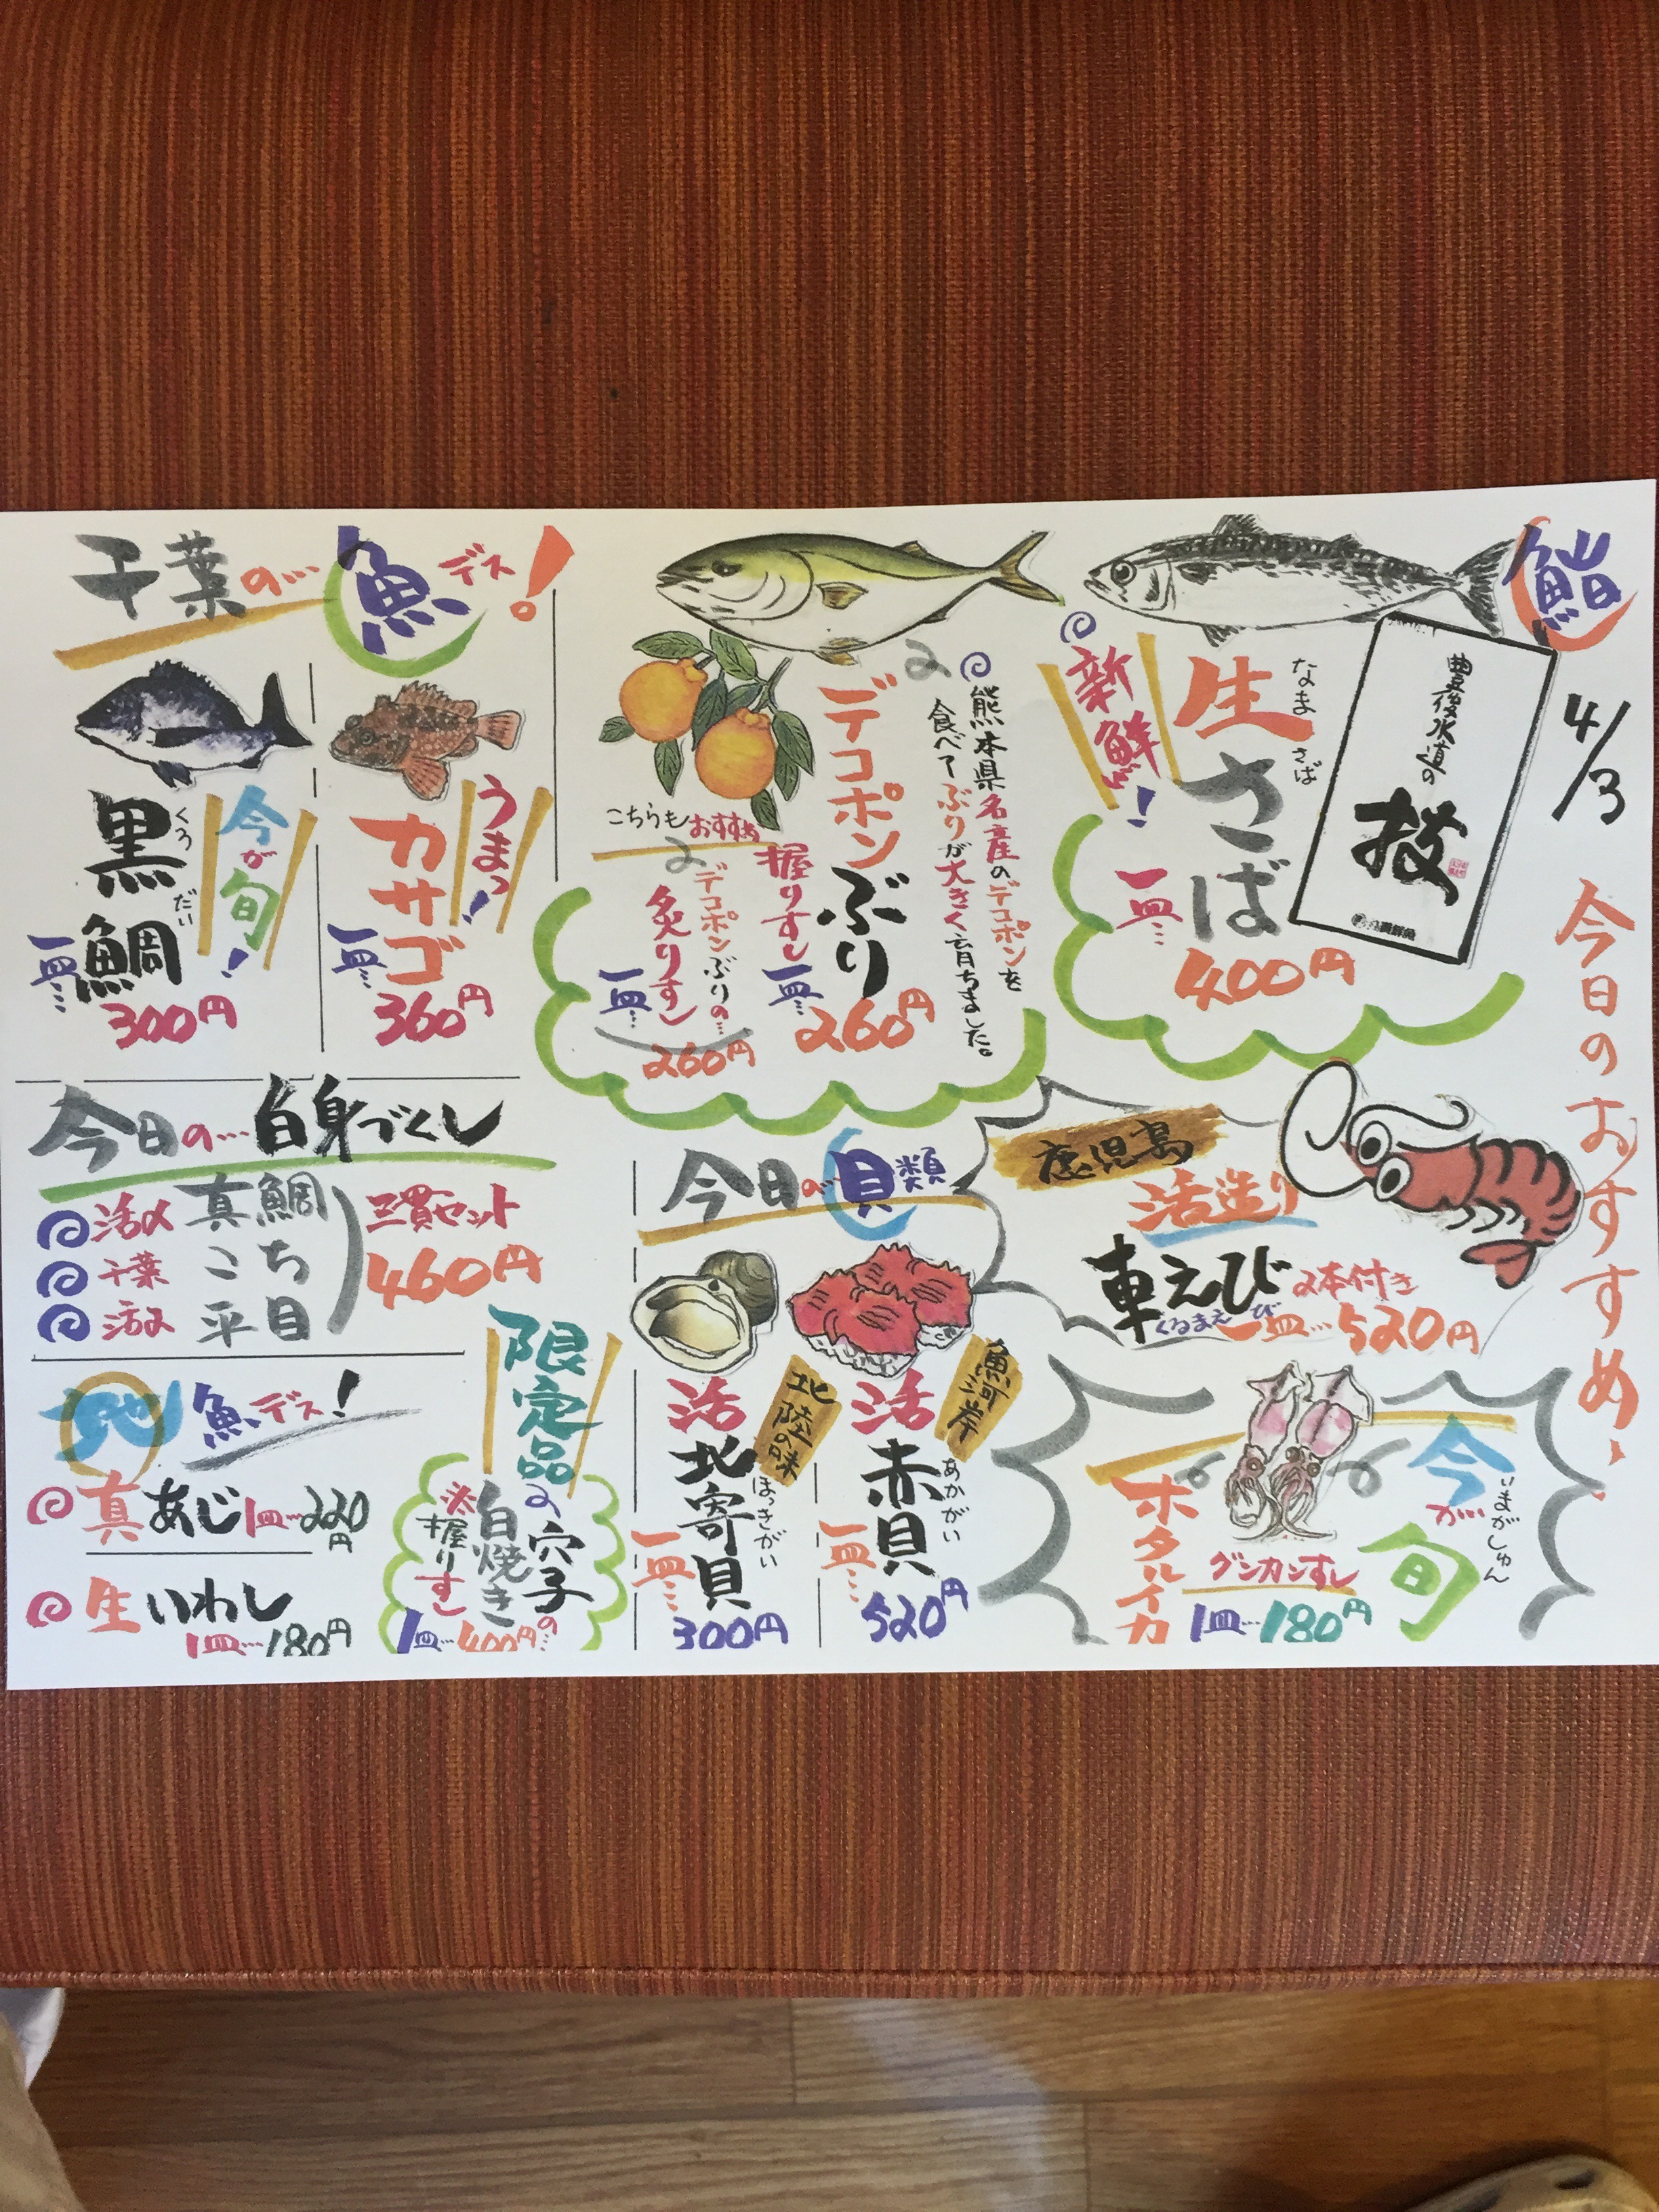 鮨
4/3
今日のおすすめ
豊後水道の
技
生さば
なま
さば
新鮮!
一皿…
400円
熊本県名産のデコポンを
食べてぶりが大きく育ちました。
デコポンぶり
握りすし
一皿…
260円
こちらもおすすめ
デコポンぶりの…
炙りすし
一皿…
260円
千葉の…魚デス!
うまっ!
カサゴ
一皿…
360円
今が旬!
黒鯛
くろ
だい
一皿…
300円
鹿児島
活造り
車えび
くるまえび
2本付き
一皿…520円
今が旬
いまがしゅん
ホタルイカ
グンカンすし
1皿…180円
今日の貝類
魚河岸
活赤貝
あかがい
一皿…
520円
北陸の味
活北寄貝
ほっきがい
一皿…
300円
今日の…白身づくし
活〆 真鯛
千葉 こち
活〆 平目
三貫セット
460円
限定品
穴子の
白焼き
※握りすし
1皿…400円
地魚デス!
真あじ1皿…220円
生いわし
1皿…180円